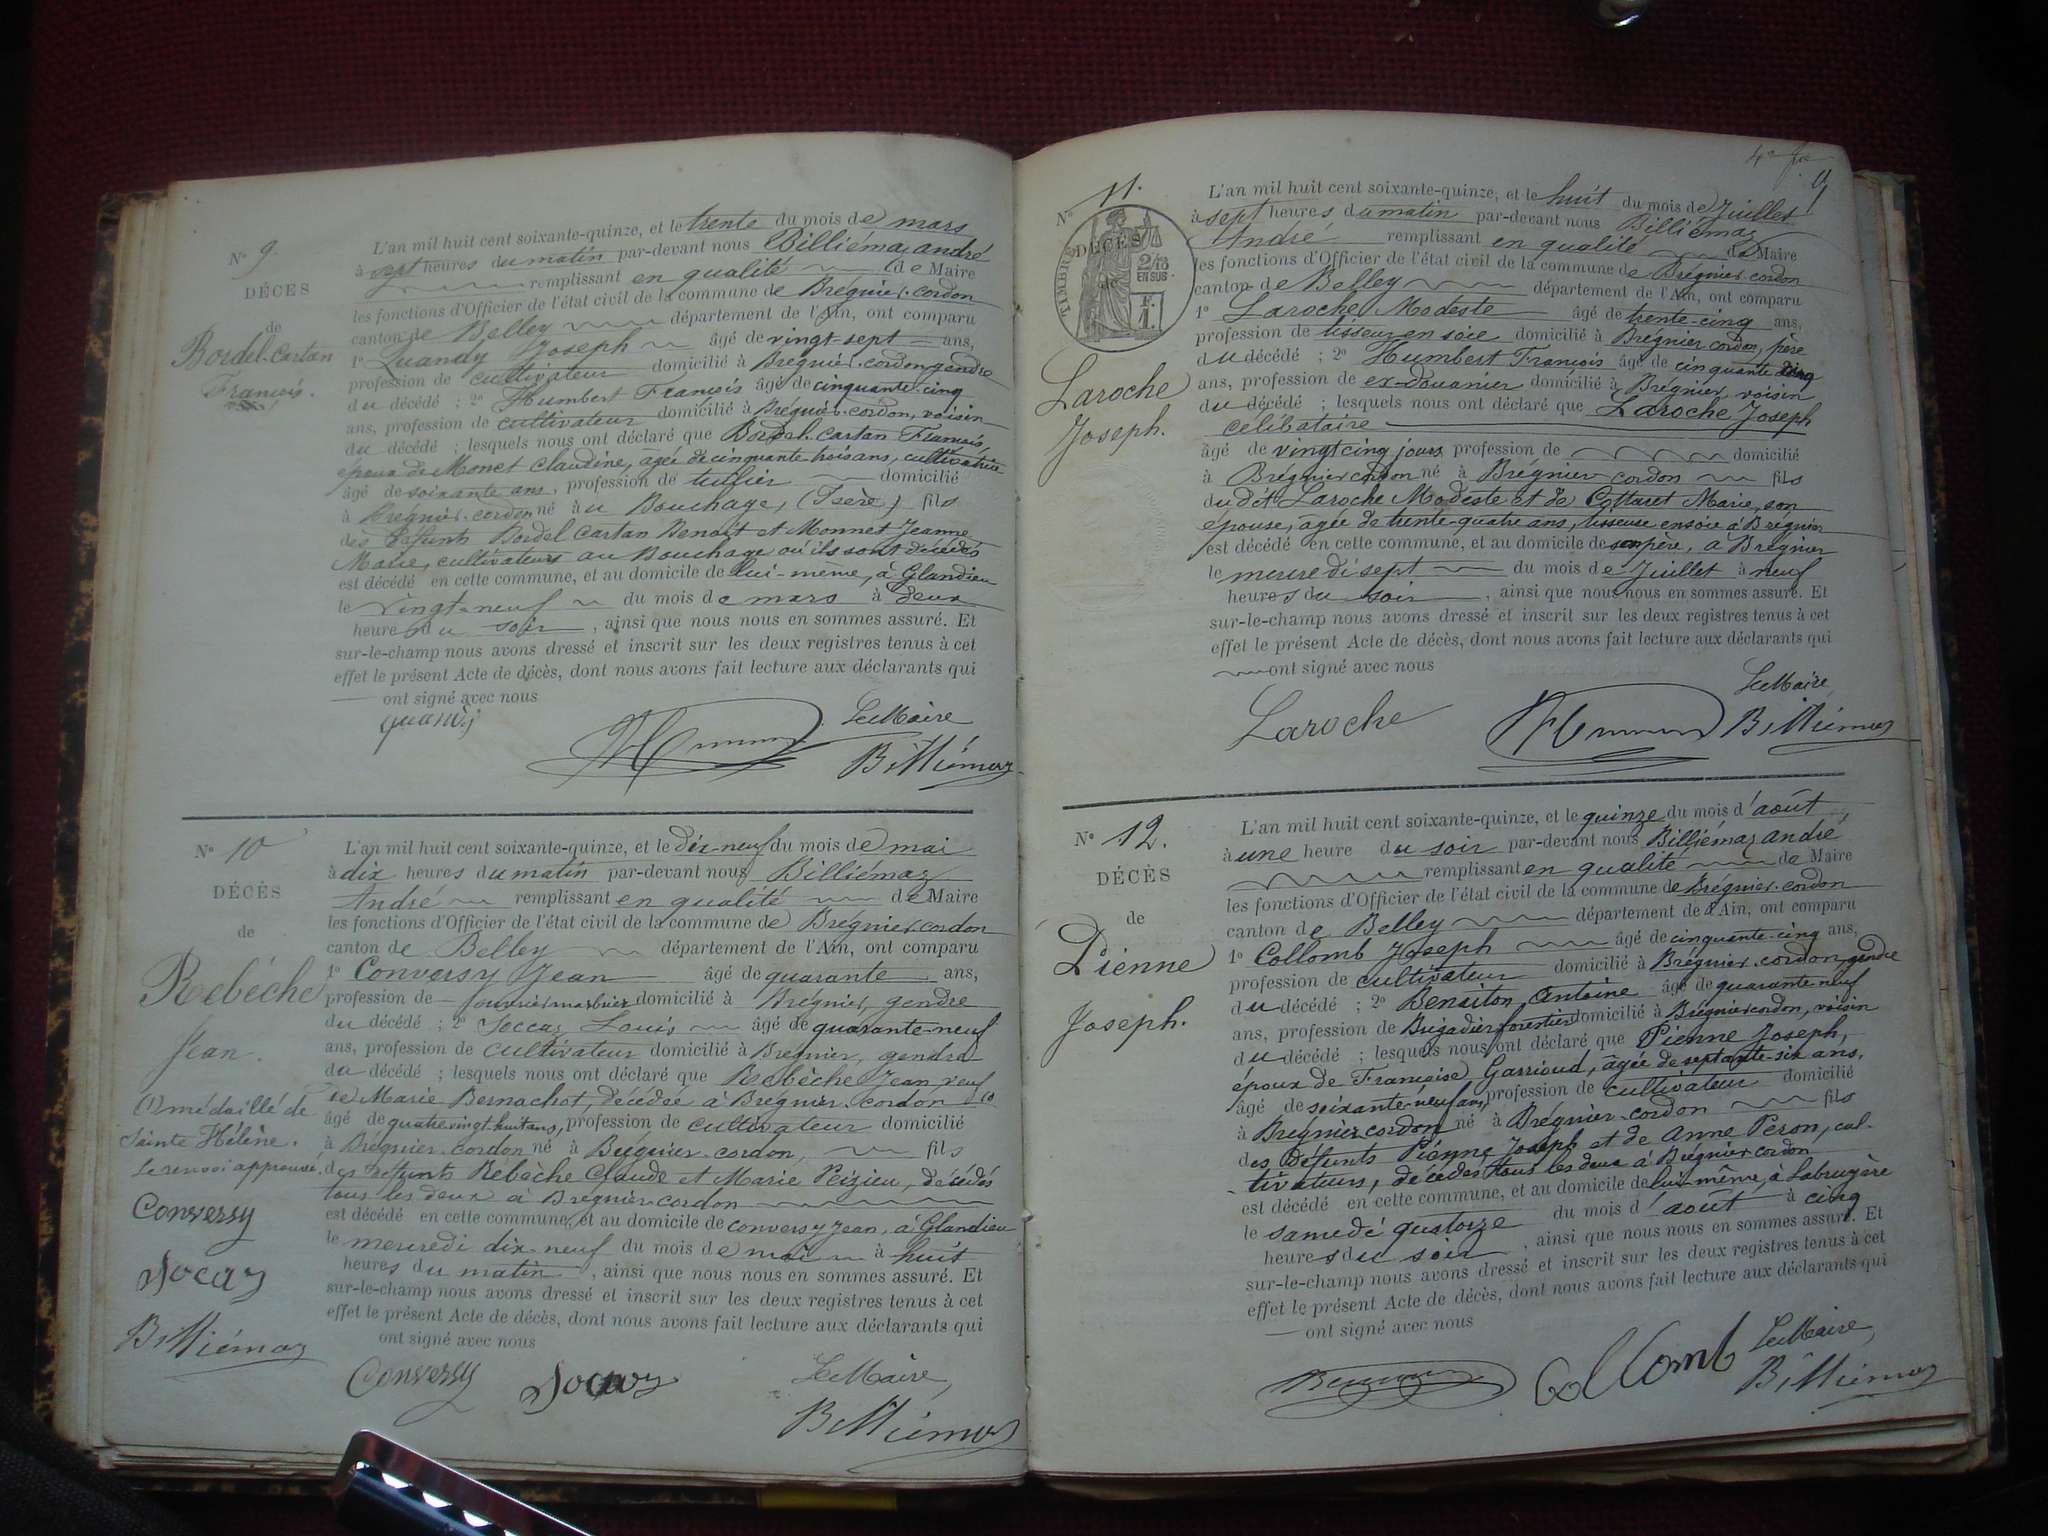 N° 9.
DÉCES
de
Bordel-Cartan
François.
L'an mil huit cent soixante-quinze, et le trente du mois de mars
à sept heures du matin par-devant nous Billiémaz andré
remplissant en qualité de Maire
les fonctions d'Officier de l'état civil de la commune de Brégnier-cordon
canton de Belley département de l'Ain, ont comparu
1° Quandy Joseph âgé de vingt-sept ans,
profession de cultivateur domicilié à Brégnier-cordon, gendre
du décédé ; 2° Humbert François âgé de cinquante-cinq
ans, profession de cultivateur domicilié à Brégnier-cordon, voisin
du décédé ; lesquels nous ont déclaré que Bordel-cartan François,
époux de Monet Claudine, agée de cinquante trois ans, cultivatrice
âgé de soixante ans, profession de tuilier domicilié
à Brégnier-cordon né au Bouchage, (Isère) fils
des défunts Bordel Cartan Benoit et Monnet Jeanne
Marie, cultivateurs au Bouchage où ils sont décédés
est décédé en cette commune, et au domicile de lui-même, à Glandieu
le vingt-neuf du mois de mars à deux
heures du soir, ainsi que nous nous en sommes assuré. Et
sur-le-champ nous avons dressé et inscrit sur les deux registres tenus à cet
effet le présent Acte de décès, dont nous avons fait lecture aux déclarants qui
ont signé avec nous
Le Maire
Billiémaz
N° 10
DÉCÈS
de
Rebêche
Jean.
(1) médaillé de
Sainte Hélène.
Le renvoi approuvé.
Conversy
Socaz
Billiémaz
L'an mil huit cent soixante-quinze, et le dix-neuf du mois de mai
à dix heures du matin par-devant nous Billiémaz
André remplissant en qualité de Maire
les fonctions d'Officier de l'état civil de la commune de Brégnier-cordon
canton de Belley département de l'Ain, ont comparu
1° Conversy Jean âgé de quarante ans,
profession de domicilié à Brégnier, gendre
du décédé ; 2° Soccaz Louis âgé de quarante-neuf
ans, profession de cultivateur domicilié à Brégnier, gendre
du décédé ; lesquels nous ont déclaré que Rebêche Jean veuf
de Marie Bernachot, décédée à Brégnier-cordon (1)
âgé de quatre vingt-huit ans, profession de cultivateur domicilié
à Brégnier-cordon né à Brégnier-cordon, fils
des défunts Rebêche Claude et Marie Peizieu, décédés
tous les deux à Brégnier-cordon
est décédé en cette commune, et au domicile de Conversy Jean, à Glandieu
le mercredi dix-neuf du mois de mai à huit
heures du matin, ainsi que nous nous en sommes assuré. Et
sur-le-champ nous avons dressé et inscrit sur les deux registres tenus à cet
effet le présent Acte de décès, dont nous avons fait lecture aux déclarants qui
ont signé avec nous
Conversy Socaz Le Maire,
Billiémaz
N° 11.
DÉCÈS
de
TIMBRES
2/10
EN SUS
F.
1.
Laroche
Joseph.
L'an mil huit cent soixante-quinze, et le huit du mois de Juillet
à sept heures du matin par-devant nous Billiémaz
André remplissant en qualité de Maire
les fonctions d'Officier de l'état civil de la commune de Brégnier-cordon
canton de Belley département de l'Ain, ont comparu
1° Laroche Modeste âgé de trente-cinq ans,
profession de tisseur en soie domicilié à Brégnier-cordon, père
du décédé ; 2° Humbert François âgé de cinquante cinq
ans, profession de ex-douanier domicilié à Brégnier, voisin
du décédé ; lesquels nous ont déclaré que Laroche Joseph
célibataire
âgé de vingt cinq jours profession de domicilié
à Brégnier cordon né à Brégnier cordon fils
du dit Laroche Modeste et de Cottaret Marie, son
épouse, agée de trente-quatre ans, tisseuse en soie à Brégnier
est décédé en cette commune, et au domicile de son père, à Brégnier
le mercredi sept du mois de Juillet à neuf
heures du soir, ainsi que nous nous en sommes assuré. Et
sur-le-champ nous avons dressé et inscrit sur les deux registres tenus à cet
effet le présent Acte de décès, dont nous avons fait lecture aux déclarants qui
ont signé avec nous
Laroche Le Maire
Billiémaz
N° 12.
DÉCÈS
de
Pienne
Joseph.
L'an mil huit cent soixante-quinze, et le quinze du mois d'août
à une heure du soir par-devant nous Billiémaz andré
remplissant en qualité de Maire
les fonctions d'Officier de l'état civil de la commune de Brégnier-cordon
canton de Belley département de l'Ain, ont comparu
1° Collomb Joseph âgé de cinquante-cinq ans,
profession de cultivateur domicilié à Brégnier-cordon, gendre
du décédé ; 2° Benaiton Antoine âgé de quarante neuf
ans, profession de Brigadier forestier domicilié à Brégnier cordon, voisin
du décédé ; lesquels nous ont déclaré que Pienne Joseph,
époux de Françoise Garrioud, âgée de septante-six ans,
âgé de soixante-neuf ans, profession de cultivateur domicilié
à Brégnier cordon né à Brégnier-cordon fils
des défunts Pienne Joseph et de Anne Péron, cul-
tivateurs, décédés tous les deux à Brégnier cordon
est décédé en cette commune, et au domicile de lui-même, à Labruyère
le samedi quatorze du mois d'août à cinq
heures du soir, ainsi que nous nous en sommes assuré. Et
sur-le-champ nous avons dressé et inscrit sur les deux registres tenus à cet
effet le présent Acte de décès, dont nous avons fait lecture aux déclarants qui
ont signé avec nous
Collomb Le Maire,
Billiémaz